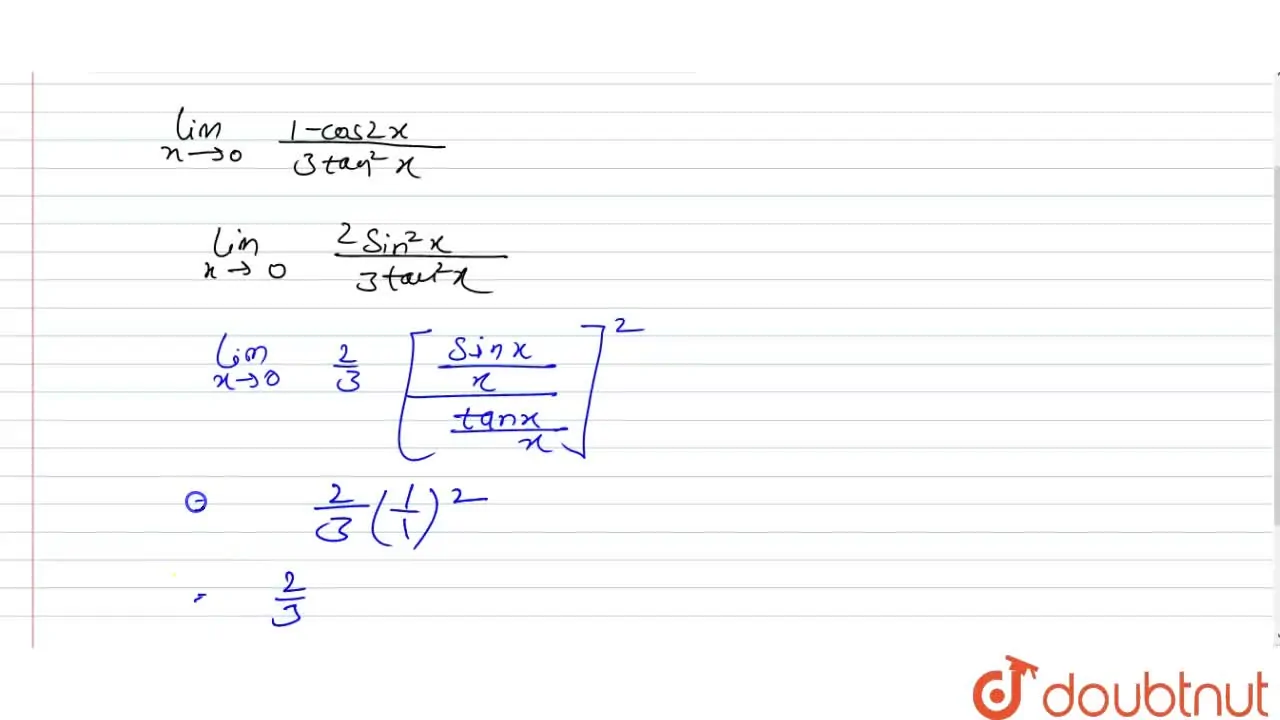 lim x→0 (1-cos2x)/(3tan²x)
lim x→0 (2Sin²x)/(3tan²x)
lim x→0 2/3 [(Sinx/x)/(tanx/x)]²
= 2/3 (1/1)²
= 2/3
doubtnut